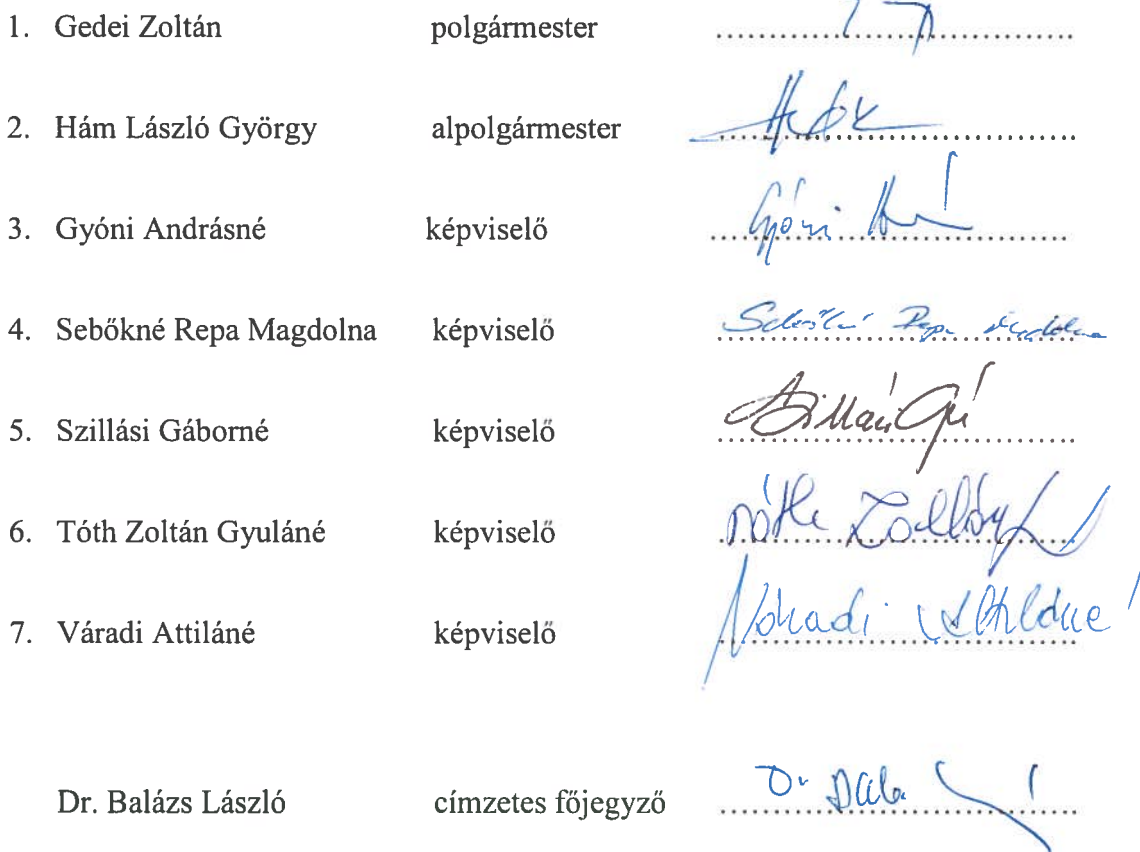 1. Gedei Zoltán polgármester
2. Hám László György alpolgármester
3. Gyóni Andrásné képviselő Gyóni
4. Sebőkné Repa Magdolna képviselő Sebőkné Repa Magdolna
5. Szillási Gáborné képviselő
6. Tóth Zoltán Gyuláné képviselő Tóth Zoltán
7. Váradi Attiláné képviselő Váradi Attiláné
Dr. Balázs László címzetes főjegyző Dr